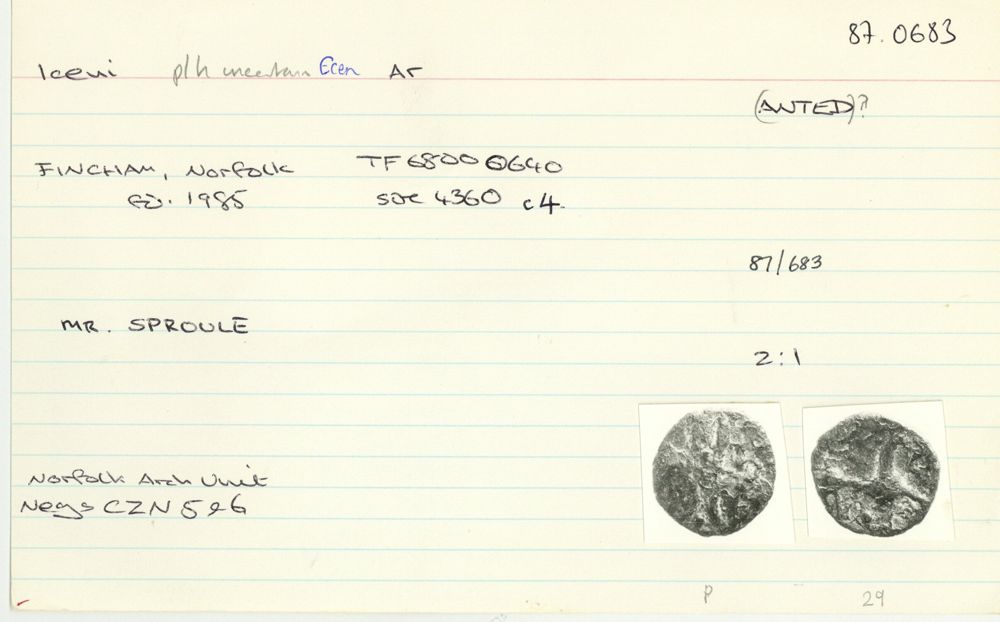 87.0683
Iceni plh uncertain Ecen Ar
(ANTED)?
FINCHAM, Norfolk TF 6800 0640
fd. 1985 site 4360 c4.
87/683
MR. SPROULE
2:1
Norfolk Arch Unit
Negs CZN 5 & 6
P 29